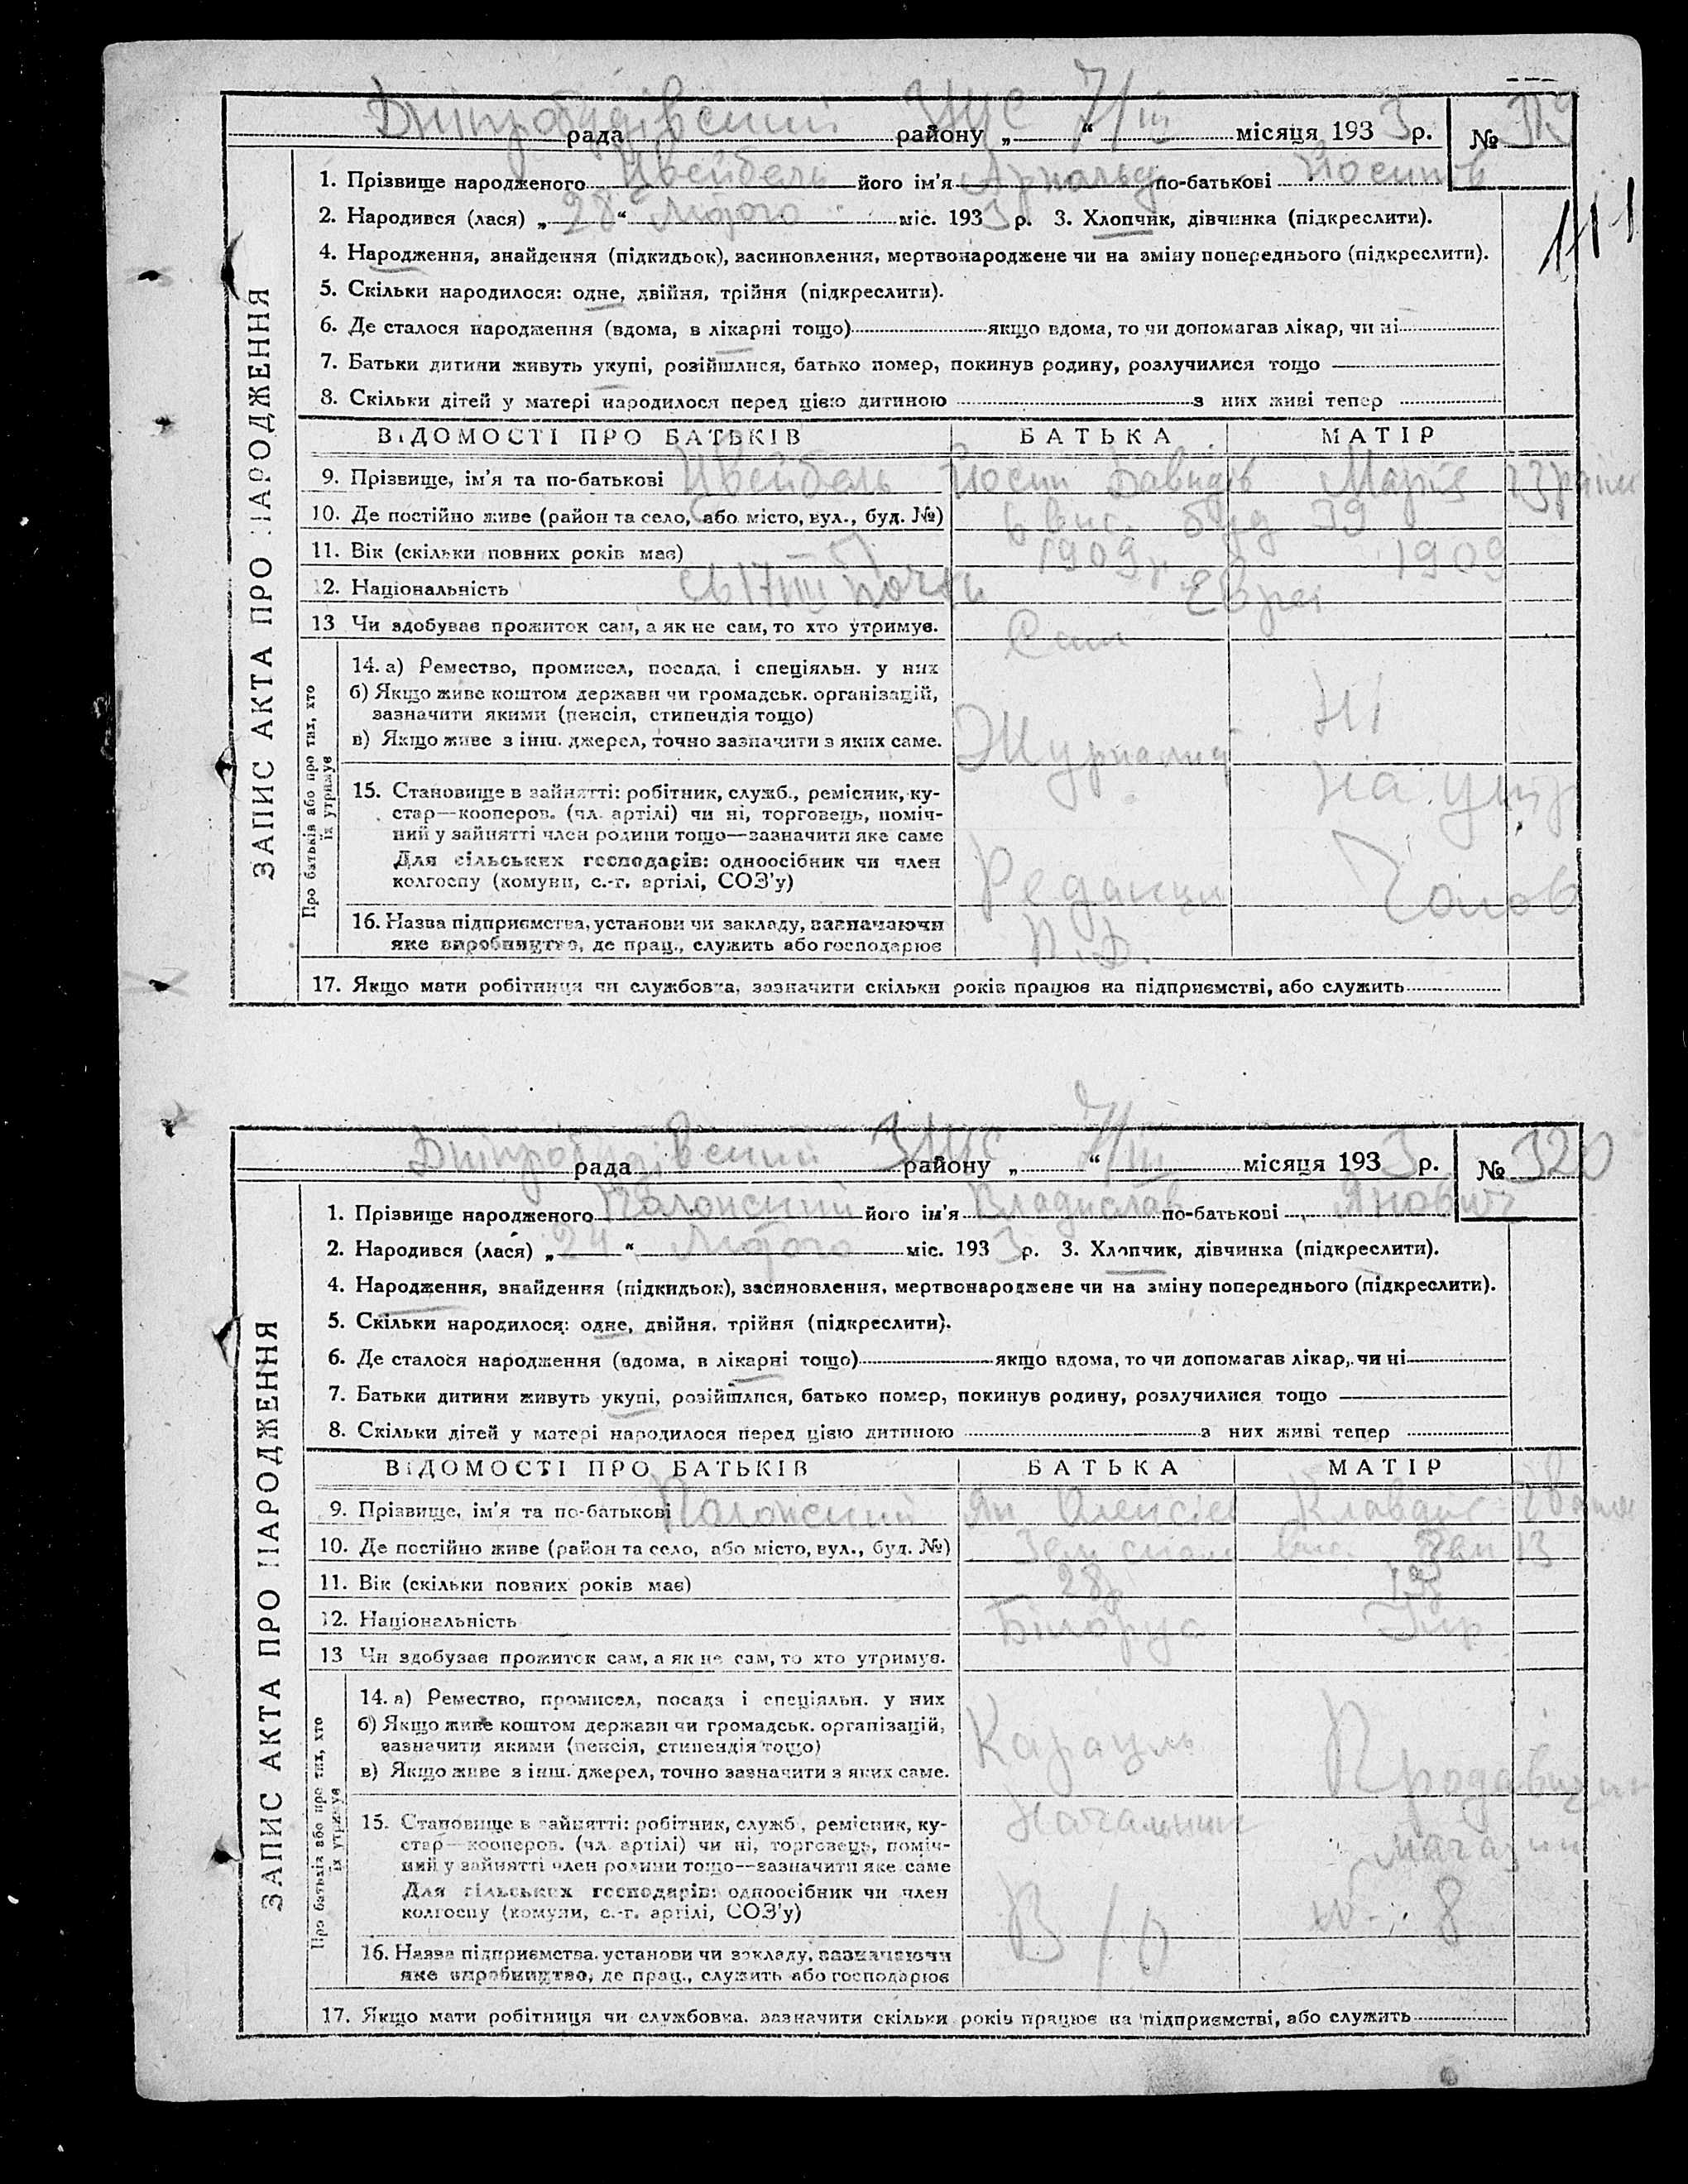 Дніпробудівський ЗАГС 7/III
рада району „ “ місяця 1933 р. № 319
ЗАПИС АКТА ПРО НАРОДЖЕННЯ
1. Прізвище народженого Цвейбель його ім'я Арнольд по-батькові Йосипов
2. Народився (лася) „28“ Лютого міс. 1933 р. 3. Хлопчик, дівчинка (підкреслити).
4. Народження, знайдення (підкидьок), засиновлення, мертвонароджене чи на зміну попереднього (підкреслити).
5. Скільки народилося: одне, двійня, трійня (підкреслити).
6. Де сталося народження (вдома, в лікарні тощо) якщо вдома, то чи допомагав лікар, чи ні
7. Батьки дитини живуть укупі, розійшлися, батько помер, покинув родину, розлучилися тощо
8. Скільки дітей у матері народилося перед цією дитиною з них живі тепер
ВІДОМОСТІ ПРО БАТЬКІВ БАТЬКА МАТІР
9. Прізвище, ім'я та по-батькові Цвейбель Йосип Давидів Марія
10. Де постійно живе (район та село, або місто, вул., буд. №) 6 вис. буд 39
11. Вік (скільки повних років має) 1909 р. 1909
12. Національність Євреї
13 Чи здобуває прожиток сам, а як не сам, то хто утримує. Сам
Про батьків або про тих, хто їх утримує
14. а) Ремество, промисел, посада і спеціяльн. у них
б) Якщо живе коштом держави чи громадськ. організацій,
зазначити якими (пенсія, стипендія тощо) Ні
в) Якщо живе з інш. джерел, точно зазначити з яких саме. Журналист
15. Становище в зайнятті: робітник, служб., ремісник, ку- на утр
стар—кооперов. (чл. артілі) чи ні, торговець, поміч-
ний у зайнятті член родини тощо—зазначити яке саме
Для сільських господарів: одноосібник чи член
колгоспу (комуни, с.-г. артілі, СОЗ'у) Редакци Чолов
16. Назва підприємства, установи чи закладу, зазначаючи
яке виробництво, де прац., служить або господарює
17. Якщо мати робітниця чи службовка, зазначити скільки років працює на підприємстві, або служить
Дніпробудівський ЗАГС 7/III
рада району „ “ місяця 1933 р. № 320
ЗАПИС АКТА ПРО НАРОДЖЕННЯ
1. Прізвище народженого Полонский його ім'я Владислав по-батькові Янович
2. Народився (лася) „24“ Лютого міс. 1933 р. 3. Хлопчик, дівчинка (підкреслити).
4. Народження, знайдення (підкидьок), засиновлення, мертвонароджене чи на зміну попереднього (підкреслити).
5. Скільки народилося: одне, двійня, трійня (підкреслити).
6. Де сталося народження (вдома, в лікарні тощо) якщо вдома, то чи допомагав лікар, чи ні
7. Батьки дитини живуть укупі, розійшлися, батько помер, покинув родину, розлучилися тощо
8. Скільки дітей у матері народилося перед цією дитиною з них живі тепер
ВІДОМОСТІ ПРО БАТЬКІВ БАТЬКА МАТІР
9. Прізвище, ім'я та по-батькові Полонский Ян Олексієв Клавдія
10. Де постійно живе (район та село, або місто, вул., буд. №) вис. 13
11. Вік (скільки повних років має) 28р
12. Національність Білорус Укр
13 Чи здобуває прожиток сам, а як не сам, то хто утримує.
Про батьків або про тих, хто їх утримує
14. а) Ремество, промисел, посада і спеціяльн. у них
б) Якщо живе коштом держави чи громадськ. організацій,
зазначити якими (пенсія, стипендія тощо) Карауль
в) Якщо живе з інш. джерел, точно зазначити з яких саме. Продавщик
15. Становище в зайнятті: робітник, служб., ремісник, ку- Начальник
стар—кооперов. (чл. артілі) чи ні, торговець, поміч- магазин
ний у зайнятті член родини тощо—зазначити яке саме
Для сільських господарів: одноосібник чи член
колгоспу (комуни, с.-г. артілі, СОЗ'у) № 8
16. Назва підприємства, установи чи закладу, зазначаючи
яке виробництво, де прац., служить або господарює
17. Якщо мати робітниця чи службовка, зазначити скільки років працює на підприємстві, або служить